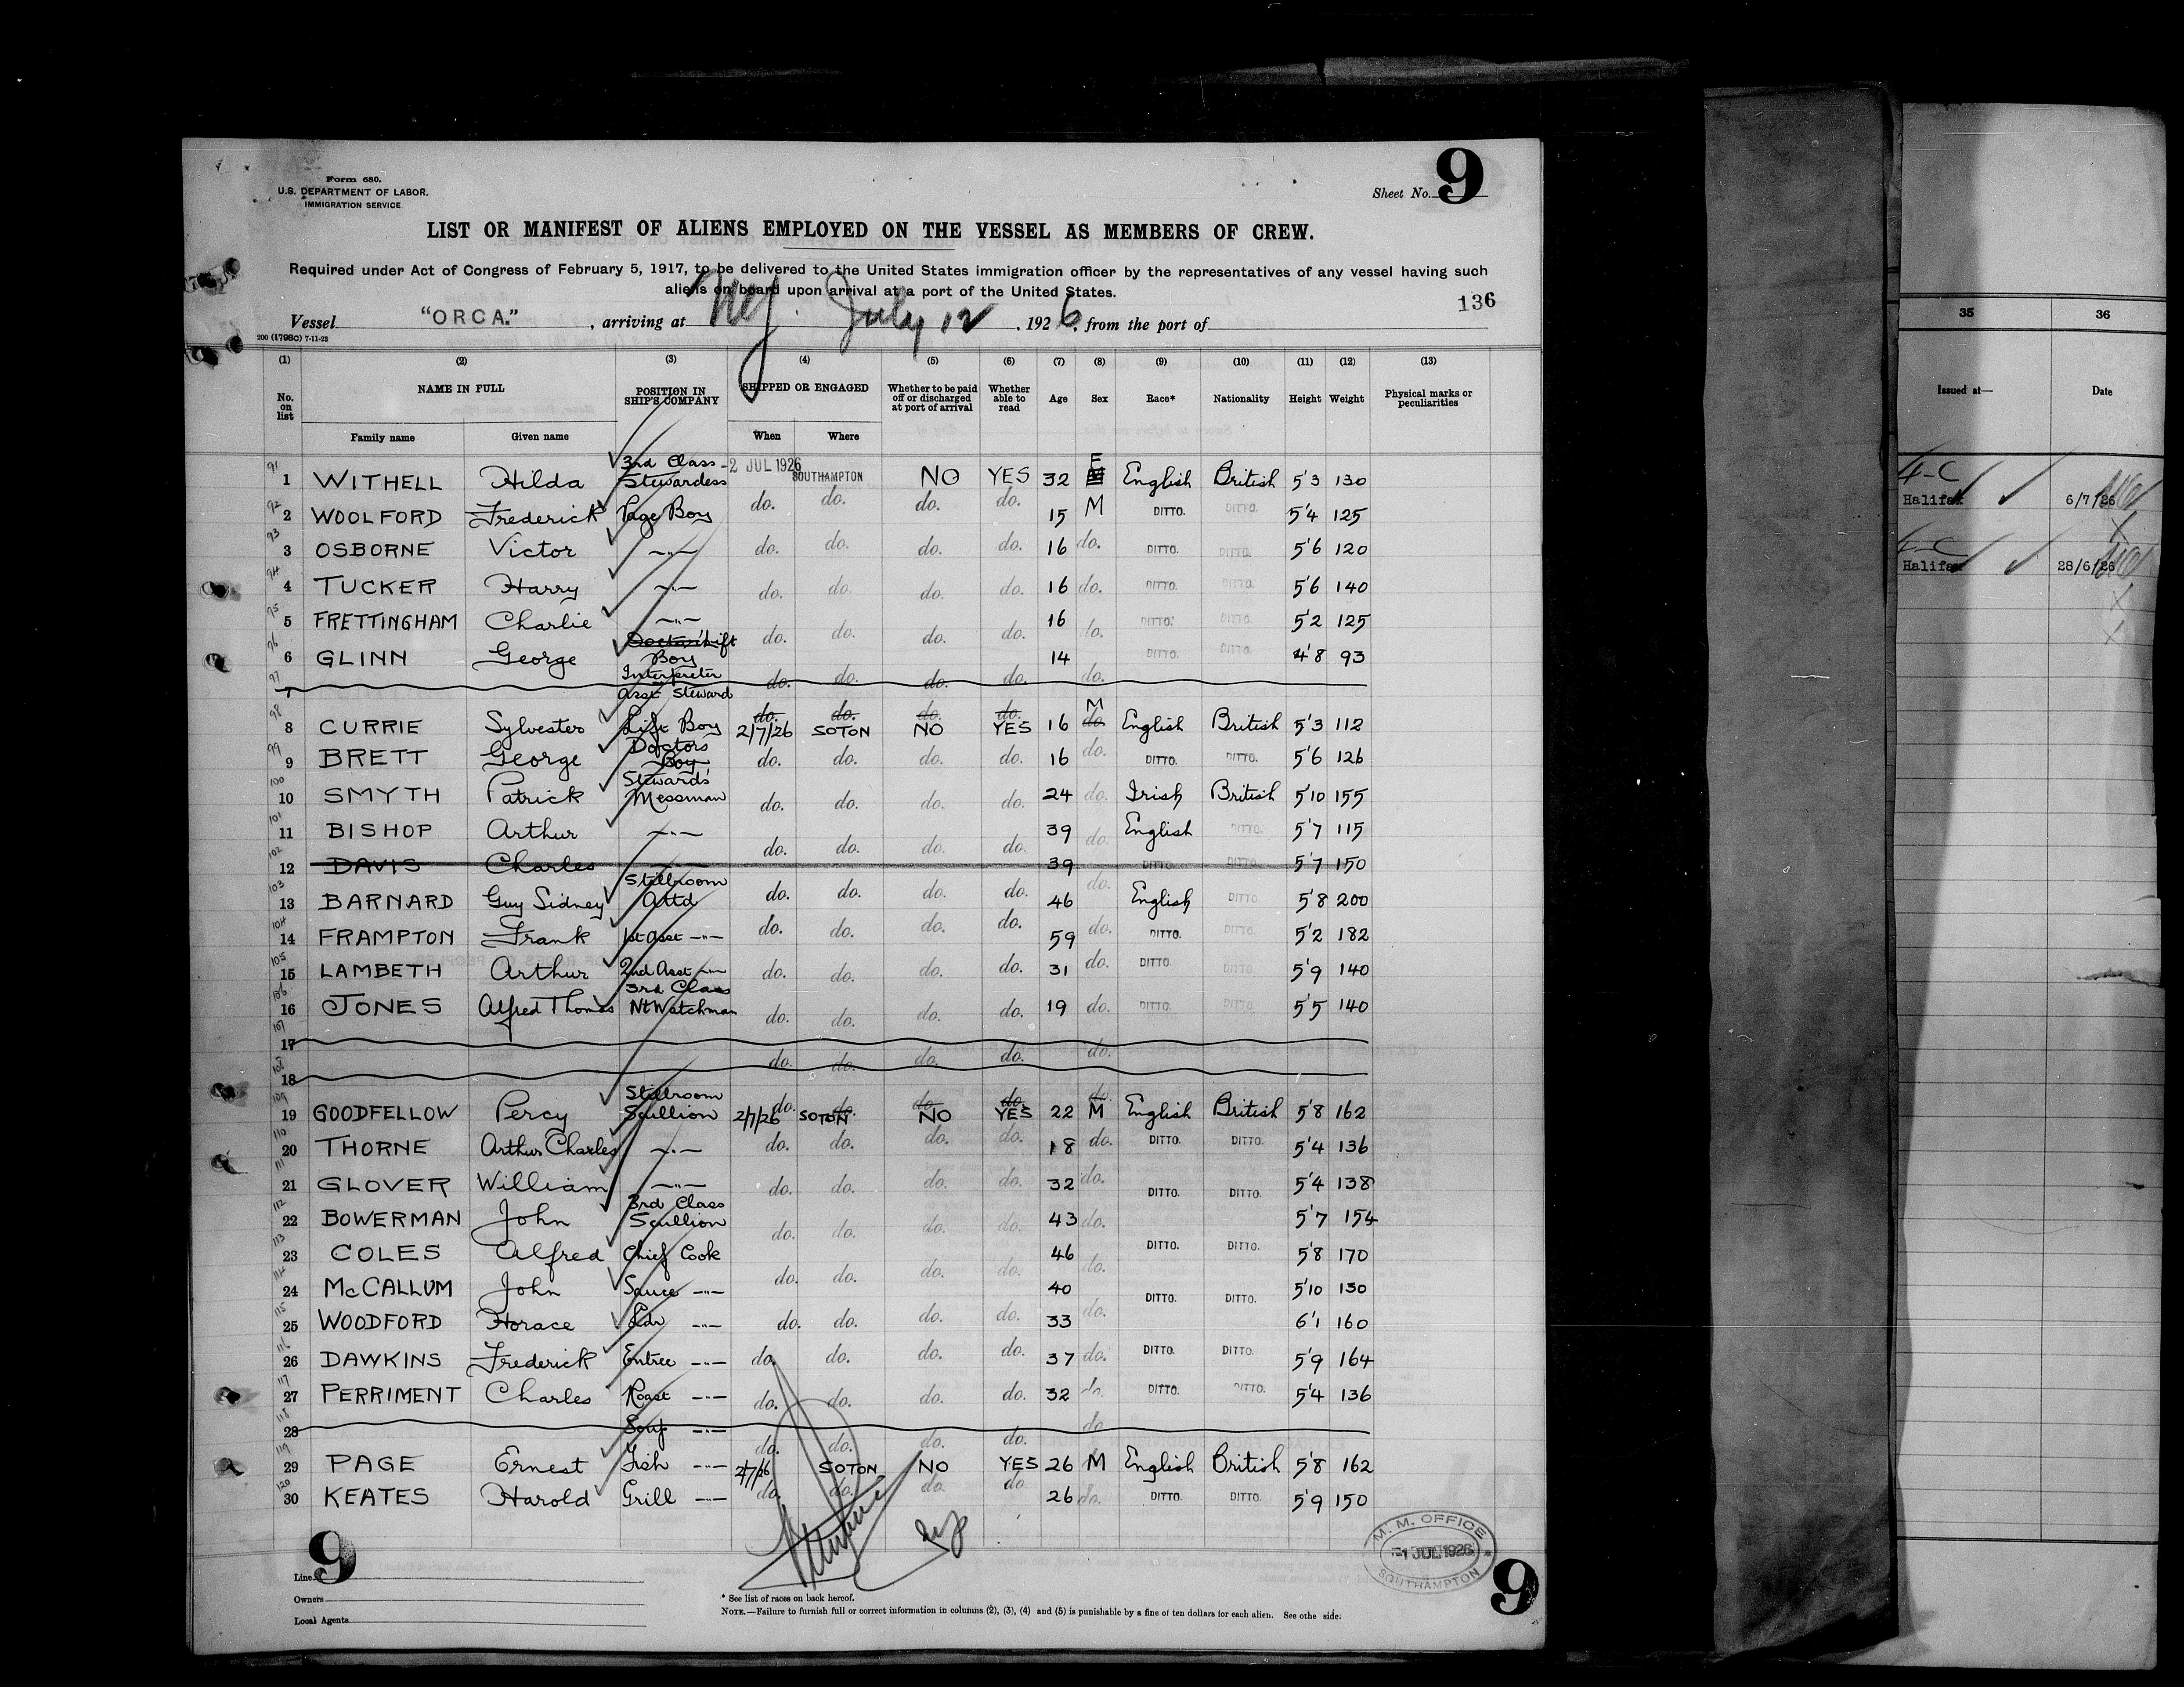 Form 680.
U.S. DEPARTMENT OF LABOR.
IMMIGRATION SERVICE
Sheet No. 9
LIST OR MANIFEST OF ALIENS EMPLOYED ON THE VESSEL AS MEMBERS OF CREW.
Required under Act of Congress of February 5, 1917, to be delivered to the United States immigration officer by the representatives of any vessel having such
aliens on board upon arrival at a port of the United States.
136
Vessel "ORCA." , arriving at July 12 , 1926, from the port of
200 (1798c) 7-11-23
(1) (2) (3) (4) (5) (6) (7) (8) (9) (10) (11) (12) (13)
No. on list NAME IN FULL POSITION IN SHIP'S COMPANY SHIPPED OR ENGAGED Whether to be paid off or discharged at port of arrival Whether able to read Age Sex Race* Nationality Height Weight Physical marks or peculiarities
Family name Given name When Where
91 1 WITHELL Hilda 3rd Class Stewardess -2 JUL 1926 SOUTHAMPTON NO YES 32 F English British 5'3 130
92 2 WOOLFORD Frederick Page Boy do. do. do. do. 15 M DITTO. DITTO. 5'4 125
93 3 OSBORNE Victor -"- do. do. do. do. 16 do. DITTO. DITTO. 5'6 120
94 4 TUCKER Harry -"- do. do. do. do. 16 do. DITTO. DITTO. 5'6 140
95 5 FRETTINGHAM Charlie -"- do. do. do. do. 16 do. DITTO. DITTO. 5'2 125
96 6 GLINN George Doctors Lift Boy do. do. do. do. 14 do. DITTO. DITTO. 4'8 93
97 7 Interpreter Asst Steward
98 8 CURRIE Sylvester Lift Boy do. do. do. do. 2/7/26 SOTON NO YES 16 M do. English British 5'3 112
99 9 BRETT George Doctors Boy do. do. do. do. 16 do. DITTO. DITTO. 5'6 126
100 10 SMYTH Patrick Stewards' Messman do. do. do. do. 24 do. Irish British 5'10 155
101 11 BISHOP Arthur -"- do. do. do. do. 39 do. English DITTO. 5'7 115
102 12 DAVIS Charles -"- 39 DITTO. DITTO. 5'7 150
103 13 BARNARD Guy Sidney Stillroom Attd do. do. do. do. 46 do. English DITTO. 5'8 200
104 14 FRAMPTON Frank 1st Asst -"- do. do. do. do. 59 do. DITTO. DITTO. 5'2 182
105 15 LAMBETH Arthur 2nd Asst -"- do. do. do. do. 31 do. DITTO. DITTO. 5'9 140
106 16 JONES Alfred Thomas 3rd Class Nt Watchman do. do. do. do. 19 do. DITTO. DITTO. 5'5 140
107 17
108 18 do. do. do. do. do.
109 19 GOODFELLOW Percy Stillroom Scullion do. do. do. do. do. 2/7/26 SOTON NO YES 22 M English British 5'8 162
110 20 THORNE Arthur Charles -"- do. do. do. do. 18 do. DITTO. DITTO. 5'4 136
111 21 GLOVER William -"- do. do. do. do. 32 do. DITTO. DITTO. 5'4 138
112 22 BOWERMAN John 3rd Class Scullion do. do. do. do. 43 do. 5'7 154
113 23 COLES Alfred Chief Cook 46 do. DITTO. DITTO. 5'8 170
114 24 McCALLUM John Sauce -"- do. do. do. do. 40 DITTO. DITTO. 5'10 130
115 25 WOODFORD Horace -"- do. do. do. do. 33 do. 6'1 160
116 26 DAWKINS Frederick Entree -"- do. do. do. do. 37 do. DITTO. DITTO. 5'9 164
117 27 PERRIMENT Charles Roast -"- do. do. do. do. 32 do. DITTO. DITTO. 5'4 136
118 28 Soup -"- do. do. do. do. do.
119 29 PAGE Ernest Fish -"- 2/7/26 SOTON NO YES 26 M English British 5'8 162
120 30 KEATES Harold Grill -"- do. do. do. do. 26 do. DITTO. DITTO. 5'9 150
9
Line
Owners
Local Agents
* See list of races on back hereof.
NOTE.—Failure to furnish full or correct information in columns (2), (3), (4) and (5) is punishable by a fine of ten dollars for each alien. See othe side.
M. M. OFFICE
-1 JUL 1926
SOUTHAMPTON
9
35 36
Issued at— Date
4-C
Halifax 6/7/26
4-C
Halifax 28/6/26